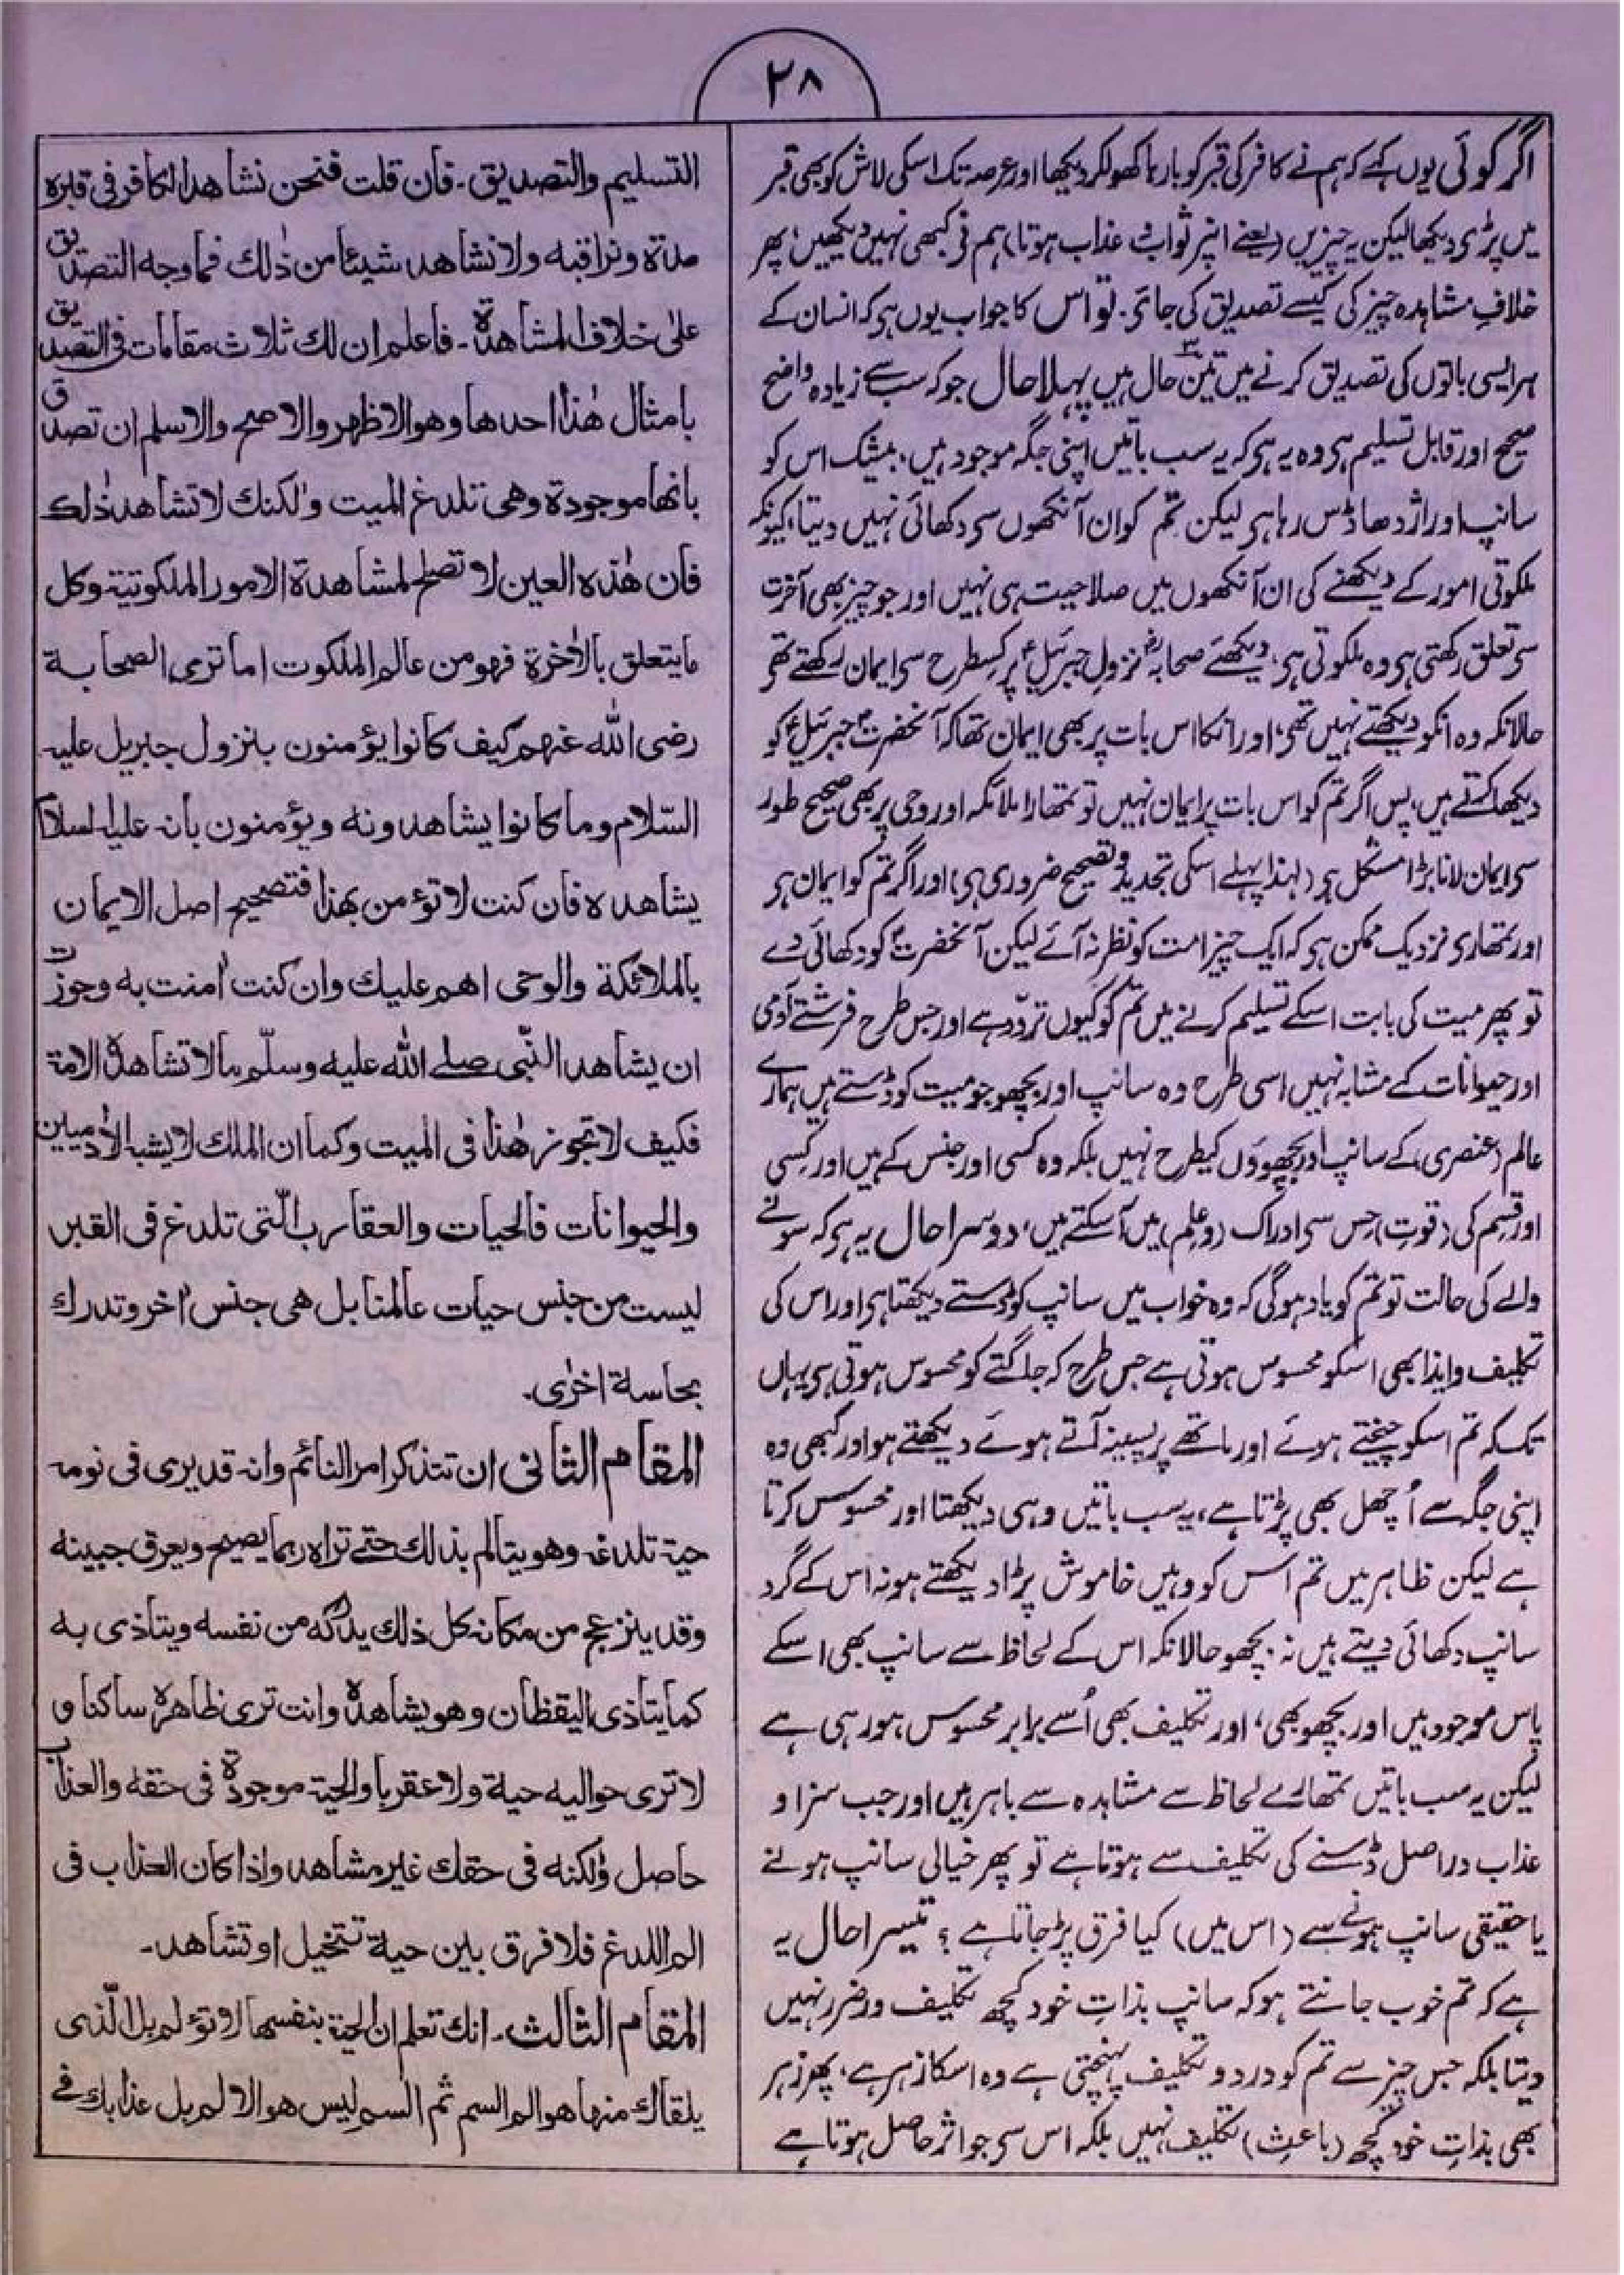 ۲۸
اگر کوئی یوں کہے کہ ہم نے کافر کی قبر کو بارہا کھولکر دیکھا اور عرصہ تک اسکی لاش کو بھی قبر
میں پڑی دیکھا لیکن یہ چیزیں (یعنے اسپر ثواب و عذاب ہوتا) ہم نے کبھی نہیں دیکھیں، پھر
خلافِ مشاہدہ چیز کی کیسے تصدیق کی جائے۔ تو اس کا جواب یوں ہے کہ انسان کے
ہر ایسی باتوں کی تصدیق کرنے میں تین حال ہیں پہلا حال جو کہ سب سے زیادہ واضح
صحیح اور قابل تسلیم ہے وہ یہ ہے کہ یہ سب باتیں اپنی جگہ موجود ہیں، بیشک اس کو
سانپ اور اژدھا ڈس رہا ہے لیکن تم کو ان آنکھوں سے دکھائی نہیں دیتا، کیونکہ
ملکوتی امور کے دیکھنے کی ان آنکھوں میں صلاحیت ہی نہیں اور جو چیز بھی آخرت
سے تعلق رکھتی ہے وہ ملکوتی ہے، دیکھئے صحابہؓ نزولِ جبرئیلؑ پر کسطرح سے ایمان رکھتے تھے
حالانکہ وہ انکو دیکھتے نہیں تھے، اور انکا اس بات پر بھی ایمان تھا کہ آنحضرتؐ جبرئیلؑ کو
دیکھا کرتے ہیں، پس اگر تم کو اس بات پر ایمان نہیں تو تمھارا ملائکہ اور وحی پر بھی صحیح طور
سے ایمان لانا بڑا مشکل ہے (لہذا پہلے اسکی تجدید و تصحیح ضروری ہے) اور اگر تم کو ایمان ہے
اور تمھاری نزدیک ممکن ہے کہ ایک چیز امت کو نظر نہ آئے لیکن آنحضرتؐ کو دکھائی دے
تو پھر میت کی بابت اسکے تسلیم کرنے میں تم کو کیوں تردّد ہے اور جس طرح فرشتے آدمی
اور حیوانات کے مشابہ نہیں اسی طرح وہ سانپ اور بچھو جو میت کو ڈستے ہیں ہمارے
عالم (عنصری) کے سانپ اور بچھووں کیطرح نہیں بلکہ وہ کسی اور جنس کے ہیں اور کسی
اور قسم کی (قوتِ) حِس سے ادراک (و علم) میں آسکتے ہیں، دوسرا حال یہ ہے کہ سونے
والے کی حالت تو تم کو یاد ہوگی کہ وہ خواب میں سانپ کو ڈستے دیکھتا ہے اور اس کی
تکلیف و ایذا بھی اسکو محسوس ہوتی ہے جس طرح کہ جاگتے کو محسوس ہوتی ہے یہاں
تک کہ تم اسکو چیختے ہوئے اور ماتھے پر پسینہ آتے ہوئے دیکھتے ہو اور کبھی وہ
اپنی جگہ سے اُچھل بھی پڑتا ہے، یہ سب باتیں وہی دیکھتا اور محسوس کرتا
ہے لیکن ظاہر میں تم اس کو وہیں خاموش پڑا دیکھتے ہو نہ اس کے گرد
سانپ دکھائی دیتے ہیں نہ بچھو حالانکہ اس کے لحاظ سے سانپ بھی اسکے
پاس موجود ہیں اور بچھو بھی، اور تکلیف بھی اُسے برابر محسوس ہو رہی ہے
لیکن یہ سب باتیں تمھارے لحاظ سے مشاہدہ سے باہر ہیں اور جب سزا و
عذاب دراصل ڈسنے کی تکلیف سے ہوتا ہے تو پھر خیالی سانپ ہونے
یا حقیقی سانپ ہونے سے (اس میں) کیا فرق پڑ جاتا ہے؟ تیسرا حال یہ
ہے کہ تم خوب جانتے ہو کہ سانپ بذاتِ خود کچھ تکلیف و ضرر نہیں
دیتا بلکہ جس چیز سے تم کو درد و تکلیف پہنچتی ہے وہ اسکا زہر ہے، پھر زہر
بھی بذاتِ خود کچھ (باعثِ) تکلیف نہیں بلکہ اس سے جو اثر حاصل ہوتا ہے
التسلیم والتصدیق۔ فان قلت فنحن نشاھد الکافر فی قبره
مدة ونراقبه ولا نشاهد شیئا من ذٰلك فما وجه التصدیق
علی خلاف المشاهدة۔ فاعلم ان لك ثلاث مقامات فی التصدیق
بامثال هٰذا احدها وهو الاظهر والاصح والاسلم ان تصدق
بانها موجودة وهی تلدغ المیت ولٰکنك لا تشاهد ذٰلك
فان هٰذه العین لا تصلح لمشاهدة الامور الملکوتیة وکل
ما یتعلق بالاٰخرة فهو من عالم الملکوت اما تری الصحابة
رضی الله عنهم کیف کانوا یؤمنون بنزول جبریل علیه
السّلام وما کانوا یشاهدونه ویؤمنون بانه علیه السلام
یشاهده فان کنت لا تؤمن بهذا فتصحیح اصل الایمان
بالملائکة والوحی اهم علیك وان کنت اٰمنت به وجوزت
ان یشاهد النّبی صلے الله علیه وسلّم ما لا تشاهده الامة
فکیف لا تجوز هٰذا فی المیت وکما ان الملك لا یشبه الاٰدمیین
والحیوانات فالحیات والعقارب الّتی تلدغ فی القبر
لیست من جنس حیات عالمنا بل هی جنس اٰخر وتدرك
بحاسة اخرٰی۔
المقام الثانی ان تتذکر امر النائم وانه قد یری فی نومه
حیة تلدغه وهو یتألم بذلك حتے تراه ربما یصیح ویعرق جبینه
وقد ینزعج من مکانه کل ذلك یدرکه من نفسه ویتاذی به
کما یتاذی الیقظان وهو یشاهده وانت تری ظاهره ساکنا و
لا تری حوالیه حیة ولا عقربا والحیة موجودة فی حقه والعذاب
حاصل ولٰکنه فی حقك غیر مشاهد واذا کان العذاب فی
الم اللدغ فلا فرق بین حیة تتخیل او تشاهد۔
المقام الثالث۔ انك تعلم ان الحیة بنفسها لا تؤلم بل الّذی
یلقاك منها هو الم السم ثم السم لیس هو الالم بل عذابك فے